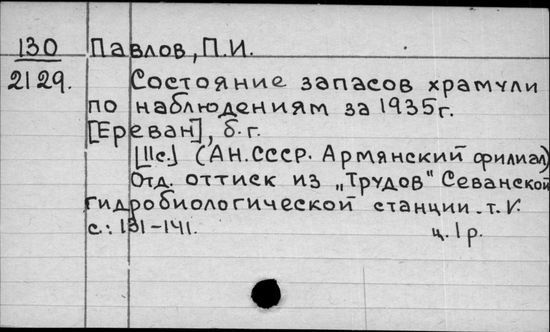 130 Павлов, П.И.
2129. Состояние запасов храмули
по наблюдениям за 1935г.
[Ереван], б.г.
[11с.] (АН.СССР. Армянский филиал)
Отд. оттиск из „Трудов" Севанской
гидробиологической станции. т. V.
с.: 131-141. ц. 1 р.